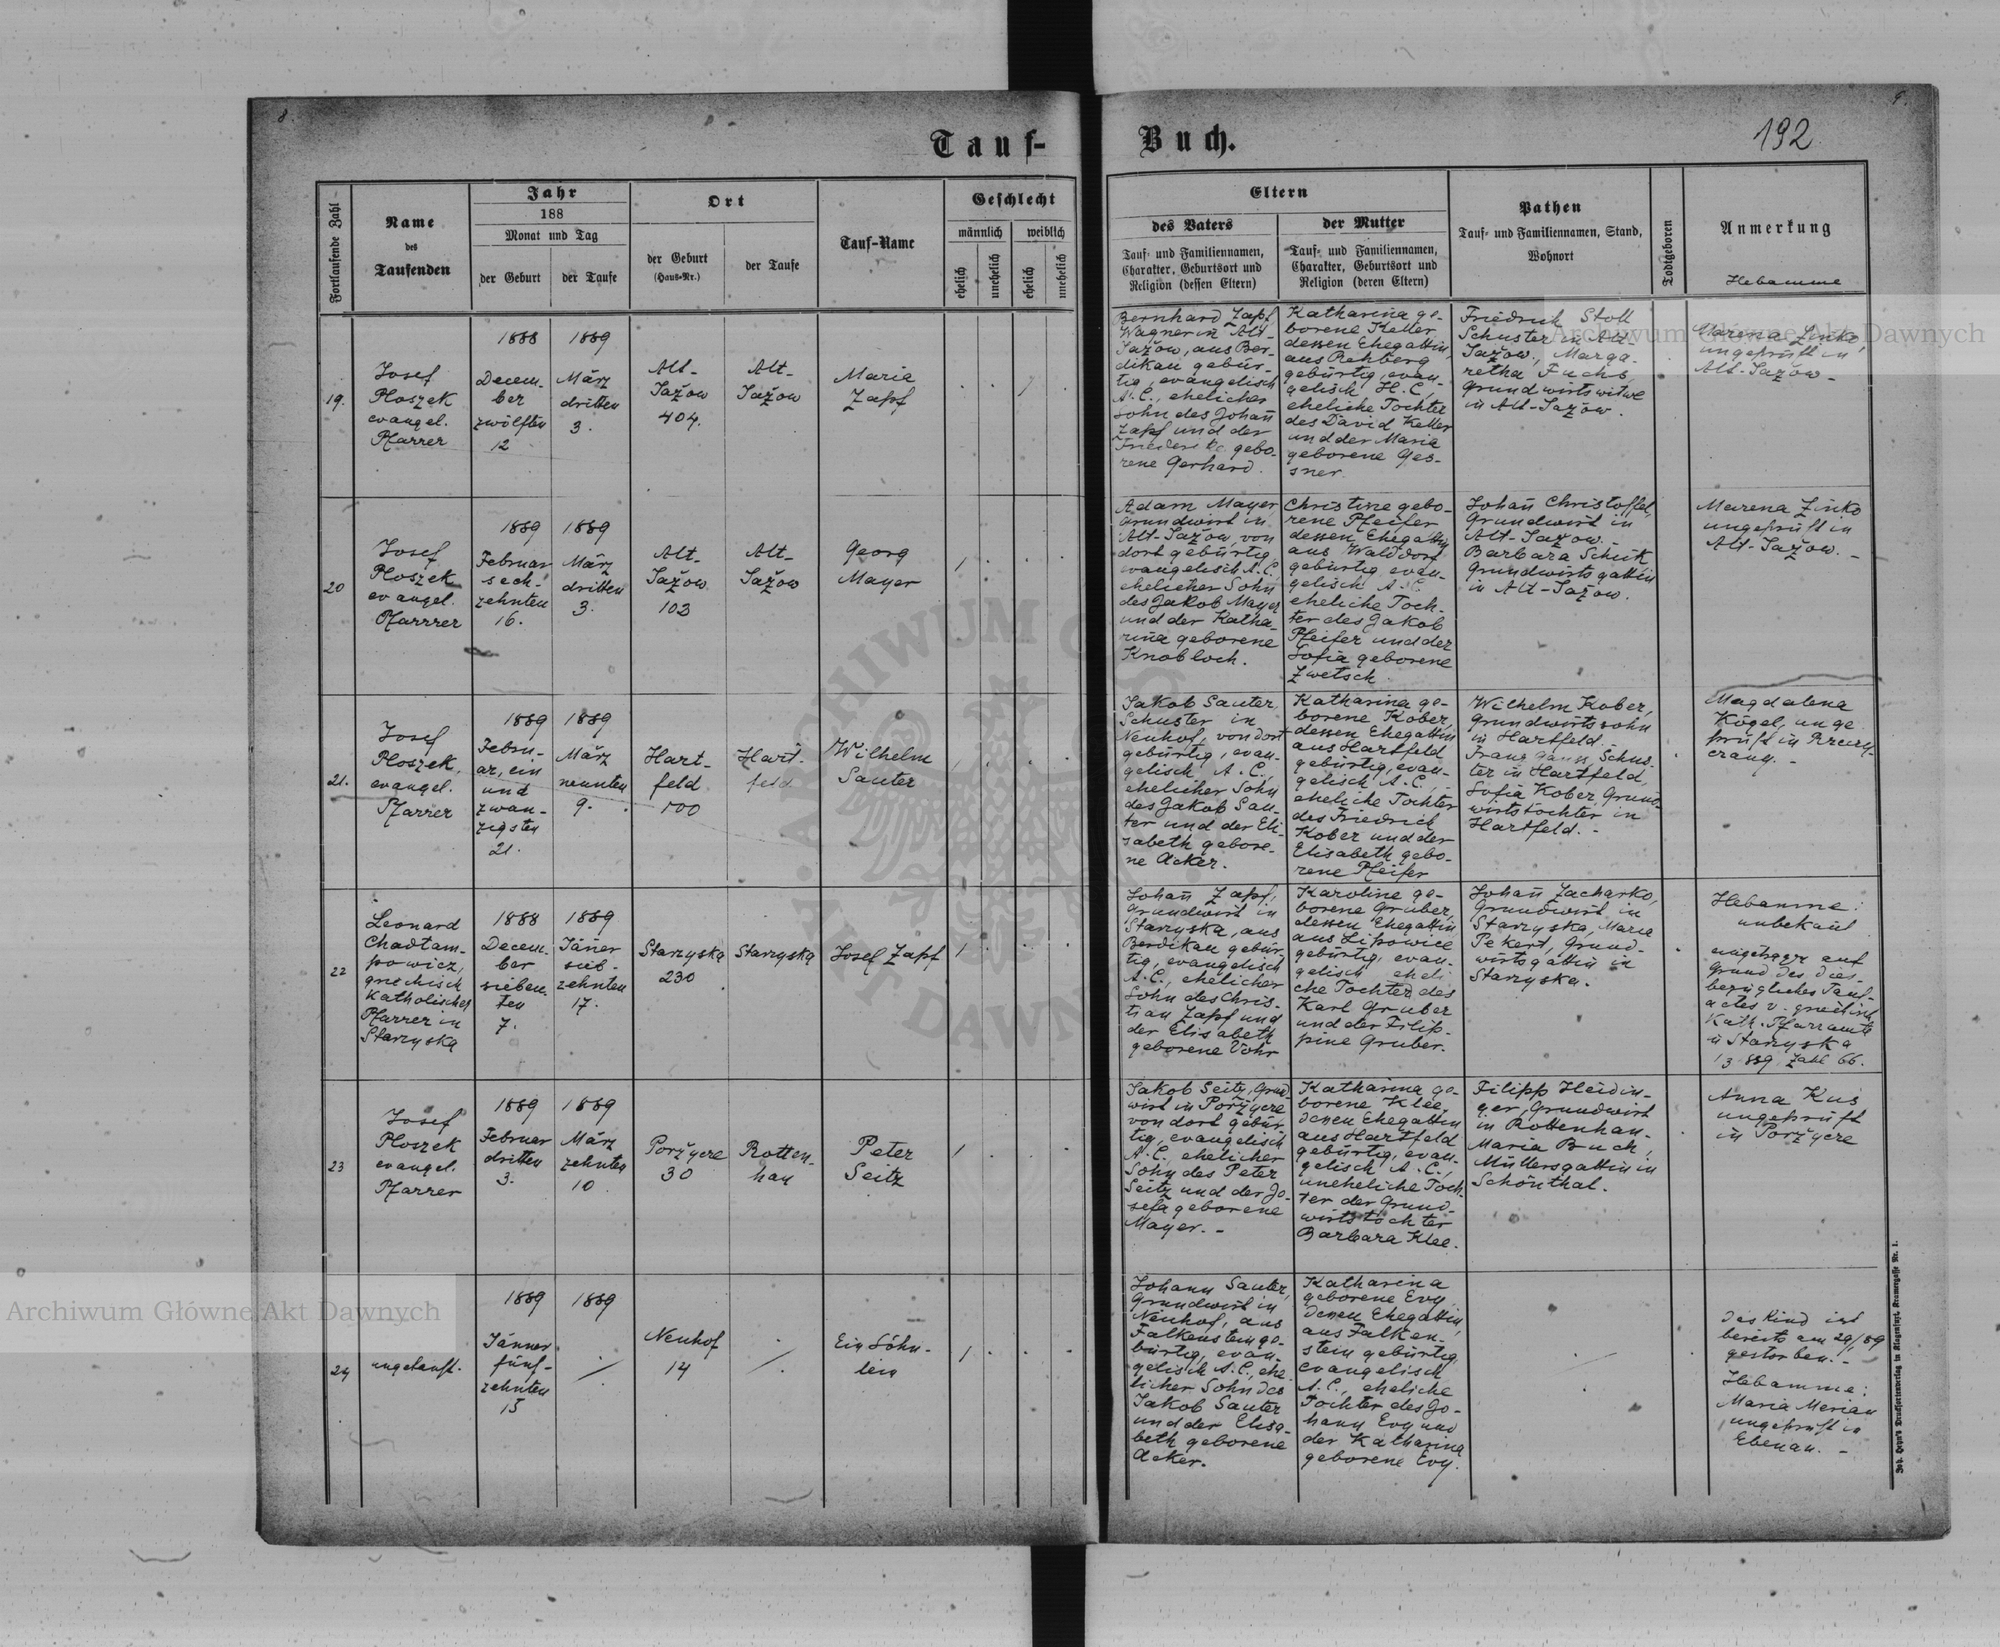 8.
9.
192
Tauf-
Buch.
Fortlaufende Zahl
Name
des
Taufenden
Jahr
188
Monat und Tag
der Geburt
der Taufe
Ort
der Geburt
(Haus-Nr.)
der Taufe
Tauf-Name
Geschlecht
männlich
weiblich
ehelich
unehelich
ehelich
unehelich
Eltern
des Vaters
Tauf- und Familiennamen,
Charakter, Geburtsort und
Religion (dessen Eltern)
der Mutter
Tauf- und Familiennamen,
Charakter, Geburtsort und
Religion (deren Eltern)
Pathen
Tauf- und Familiennamen, Stand,
Wohnort
Todtgeboren
Anmerkung
Hebamme
19.
Josef
Ploszek
evangel.
Pfarrer
1888
Decem-
ber
zwölften
12
1889
März
dritten
3.
Alt-
Jažow
404.
Alt-
Jažow
Maria
Zapf
Bernhard Zapf
Wagner in Alt-
Jažow, aus Ber-
dikau gebür-
tig, evangelisch
A. C., ehelicher
Sohn des Johan̄
Zapf und der
Friederike gebo-
rene Gerhard.
Katharina ge-
borene Keller
dessen Ehegattin,
aus Rehberg
gebürtig, evan-
gelisch H. C.
eheliche Tochter
des David Keller
und der Maria
geborene Ges-
sner.
Friedrich Stoll
Schuster in Alt-
Jažow, Marga-
retha Fuchs
Grundwirtswitwe
in Alt-Jažow.
Marena Zinko,
ungeprüft in
Alt-Jažow.-
20
Josef
Ploszek
evangel.
Pfarrrer
1889
Februar
sech-
zehnten
16.
1889
März
dritten
3.
Alt-
Jažow
103
Alt-
Jažow
Georg
Mayer
1
Adam Mayer,
Grundwirt in
Alt-Jažow, von
dort gebürtig,
evangelisch A. C.
ehelicher Sohn
des Jakob Mayer
und der Katha-
rina geborene
Knobloch.
Christine gebo-
rene Pfeifer
dessen Ehegattin
aus Walddorf
gebürtig, evan-
gelisch A. C.
eheliche Toch-
ter des Jakob
Pfeifer und der
Sofia geborene
Zwetsch.
Johan̄ Christoffel,
Grundwirt in
Alt-Jažow.-
Barbara Schick
Grundwirtsgattin
in Alt-Jažow.
Marena Zinko
ungeprüft in
Alt-Jažow.-
21.
Josef
Ploszek,
evangel.
Pfarrer
1889
Febru-
ar, ein
und
zwan-
zigsten
21.
1889
März
neunten
9.
Hart-
feld
100
Hart-
feld
Wilhelm
Sauter
1
Jakob Sauter,
Schuster in
Neuhof, von dort
gebürtig, evan-
gelisch A. C.,
ehelicher Sohn
des Jakob Sau-
ter und der Eli-
sabeth gebore-
ne Acker.
Katharina ge-
borene Kober,
dessen Ehegattin
aus Hartfeld
gebürtig, evan-
gelisch A. C.,
eheliche Tochter
des Friedrich
Kober und der
Elisabeth gebo-
rene Pfeifer
Wilhelm Kober,
Grundwirtssohn
in Hartfeld.
Schus-
ter in Hartfeld,
Sofia Kober Grund-
wirtstochter in
Hartfeld.-
Magdalena
Kögel, unge
prüft in
22
Leonard
Chadtam-
powicz,
griechisch
Katholischer
Pfarrer in
Starzyska
1888
Decem-
ber
sieben-
ten
7.
1889
Jäner
sieb-
zehnten
17.
Starzyska
230
Starzyska
Josef Zapf
1
Johan̄ Zapf,
Grundwirt in
Starzyska, aus
Berdikau gebür-
tig, evangelisch
A. C., ehelicher
Sohn des Chris-
tian Zapf und
der Elisabeth
geborene Vohr
Karoline ge-
borene Gruber,
dessen Ehegattin
aus Lipowiec
gebürtig, evan-
gelisch, eheli
che Tochter des
Karl Gruber
und der Filip-
pine Gruber.
Johan̄ Zacharko,
Grundwirt in
Starzyska, Maria
Pekert, Grund-
wirtsgattin in
Starzyska.
Hebamme:
unbekan̄t
eingetragen auf
Grund des dies-
bezüglichen Tauf-
actes v. griechisch
Kath. Pfarramte
in Starzyska
1/3 889. Zahl 66.
23
Josef
Ploszek
evangel.
Pfarrer
1889
Februar
dritten
3.
1889
März
zehnten
10.
Poržycze
30
Rotten-
han
Peter
Seitz
1
Jakob Seitz, Grund
wirt in Poržycze
von dort gebür-
tig, evangelisch
A. C. ehelicher
Sohn des Peter
Seitz und der Jo-
sefa geborene
Mayer.-
Katharina ge-
borene Klee,
dessen Ehegattin
aus Hartfeld
gebürtig, evan-
gelisch A. C.,
uneheliche Toch-
ter der Grund-
wirtstochter
Barbara Klee.
Filipp Heidin-
ger, Grundwirt
in Rottenhan-
Maria Buch,
Müllersgattin in
Schönthal.
Anna Kus
ungeprüft
in Poržycze
24
ungetauft.
1889
Jänner
fünf-
zehnten
15
1889
Neuhof
14
Ein Söhn-
lein
1
Johann Sauter,
Grundwirt in
Neuhof, aus
Falkenstein ge-
bürtig, evan-
gelisch A. C., ehe
licher Sohn des
Jakob Sauter
und der Elisa-
beth geborene
Acker.
Katharina
geborene Evy
dessen Ehegattin,
aus Falken-
stein gebürtig,
evangelisch
A. C., eheliche
Tochter des Jo-
hann Evy und
der Katharina
geborene Evy.
das Kind ist
bereits am 29/1 89
gestorben.-
Hebamme:
Maria Merian
ungeprüft in
Ebenau.-
Joh. Heyn's Drucksortenverlag in Klagenfurt, Kramergasse Nr. 1.
Archiwum Główne Akt Dawnych
Archiwum Główne Akt Dawnych